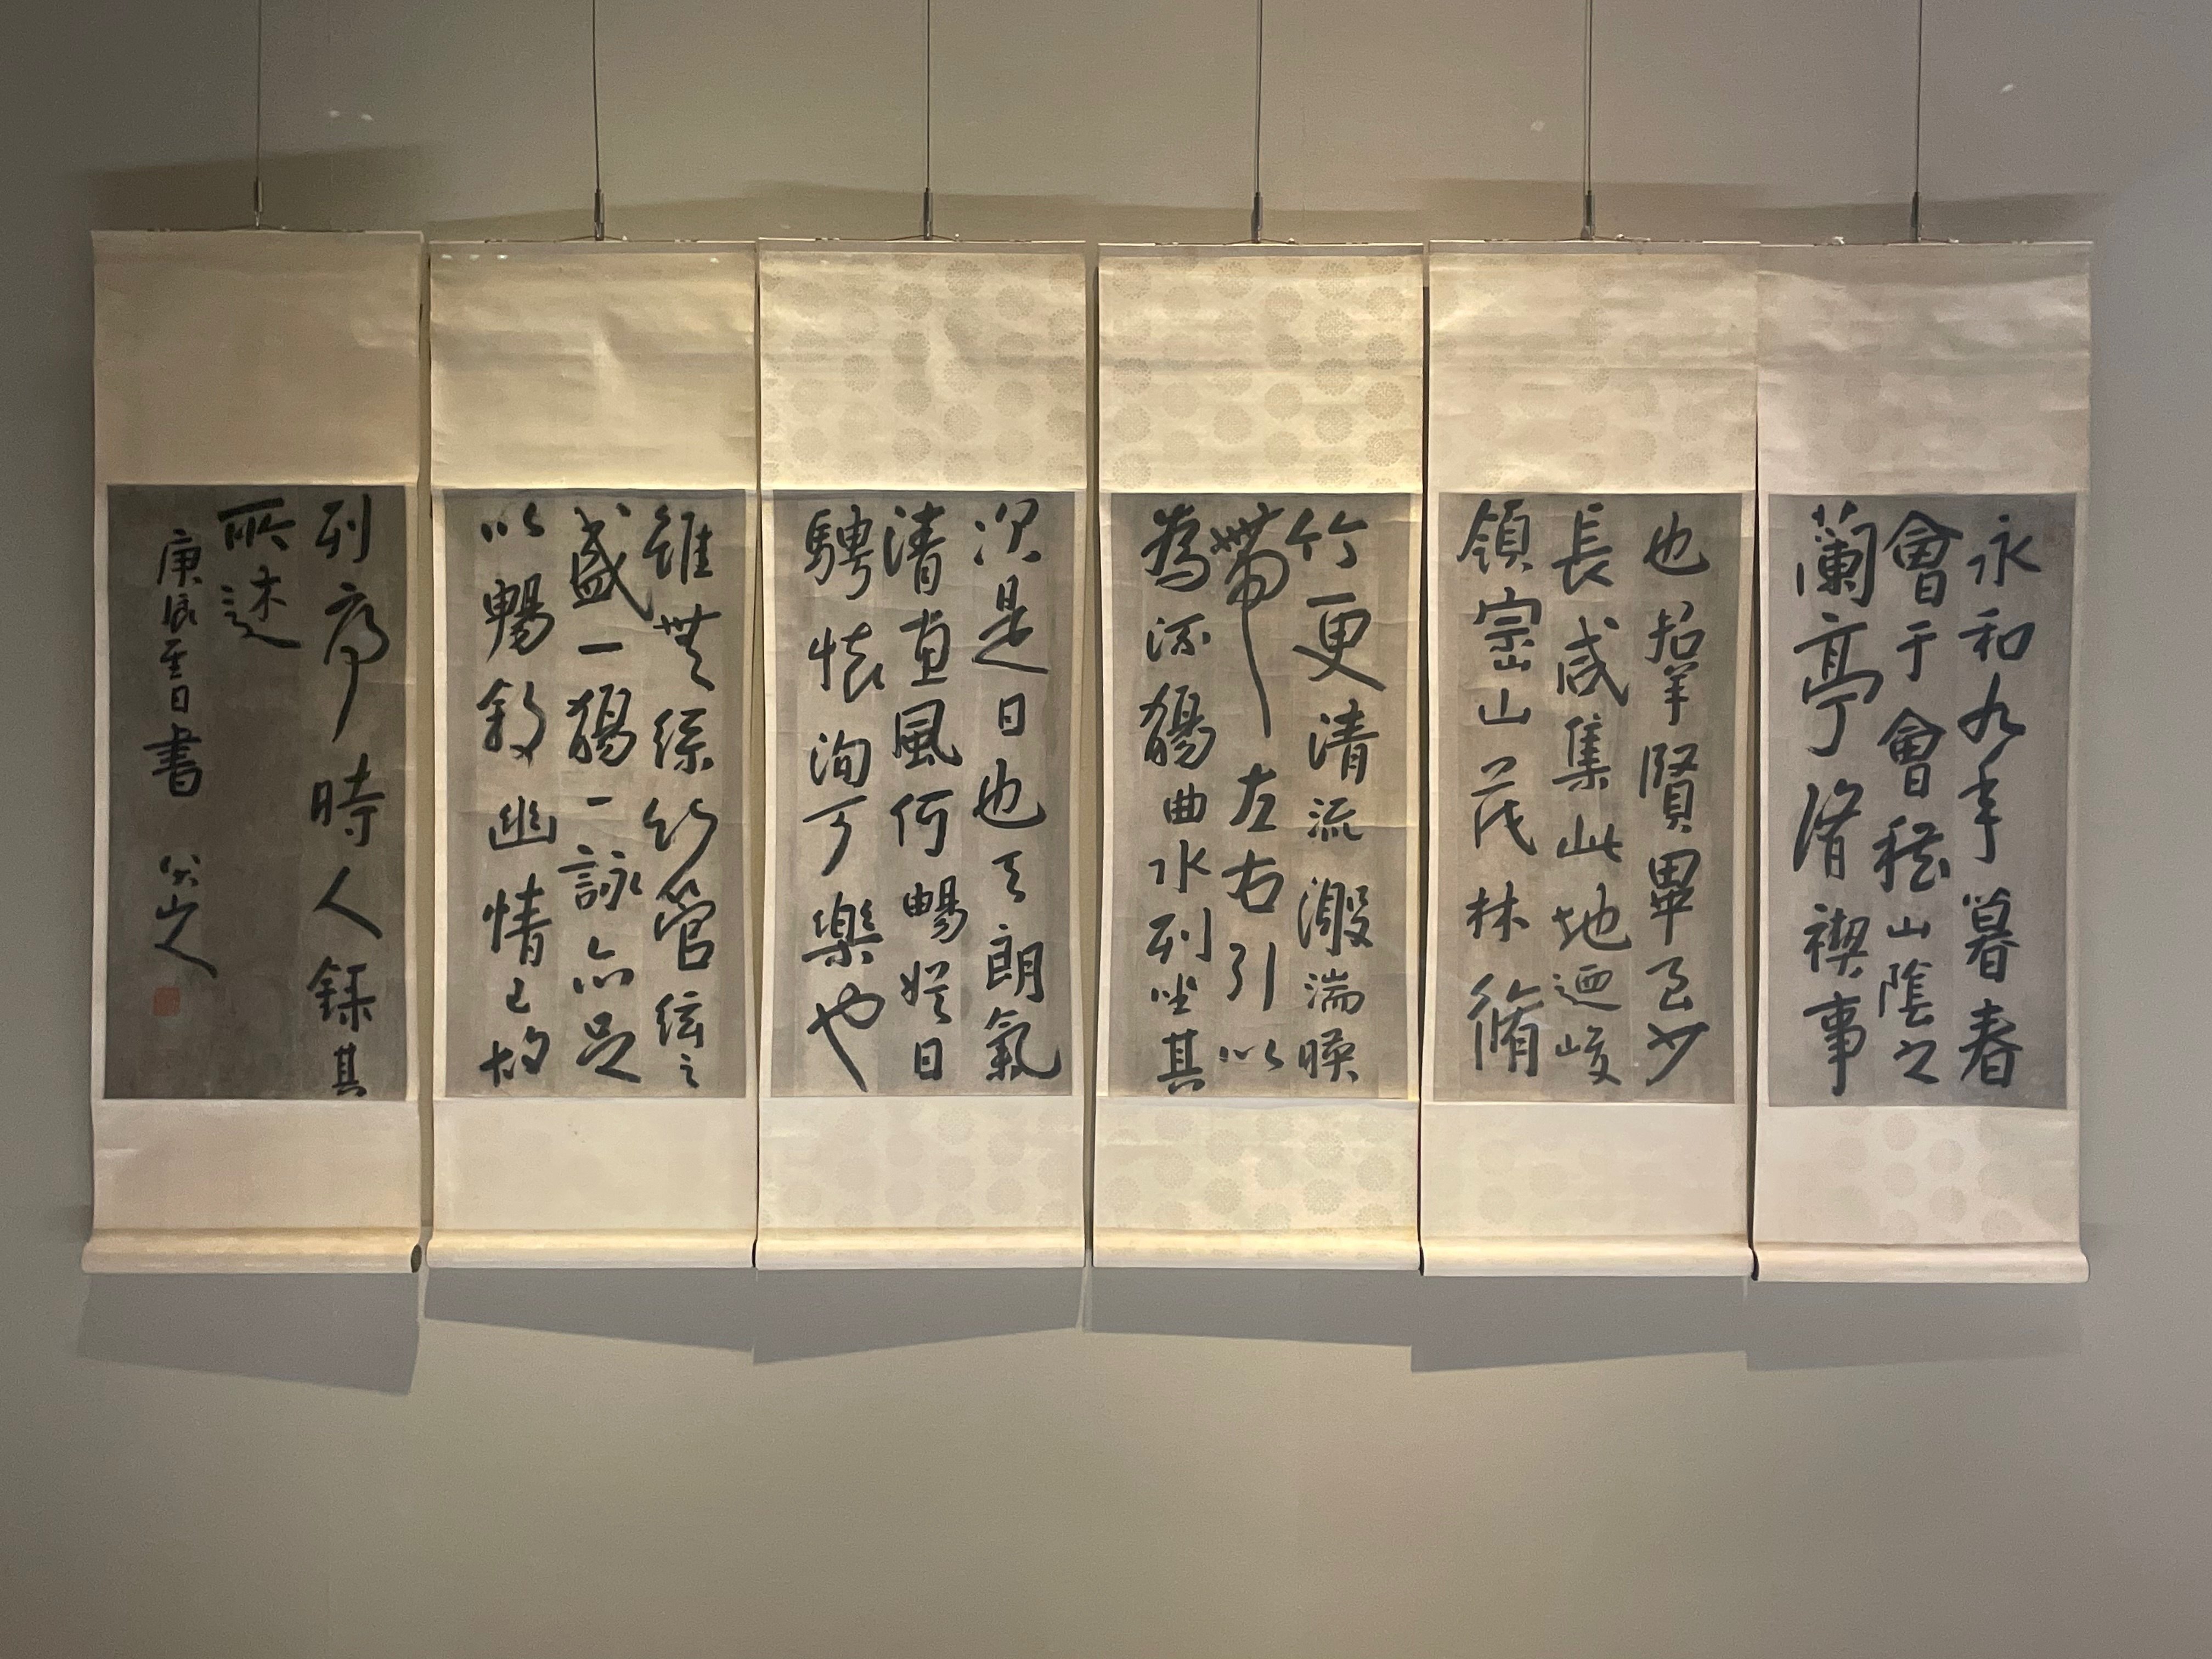 永和九年暮春
會于會稽山陰之
蘭亭脩禊事
也羣賢畢至少
長咸集此地迺峻
領崇山茂林脩
竹更清流激湍暎
帶左右引以
為流觴曲水列坐其
次是日也天朗氣
清惠風何暢娱日
騁懷洵可樂也
雖無絲竹管絃之
盛一觴一詠亦足
以暢敘幽情已故
列序時人錄其
所述
庚辰至日書 八大山人